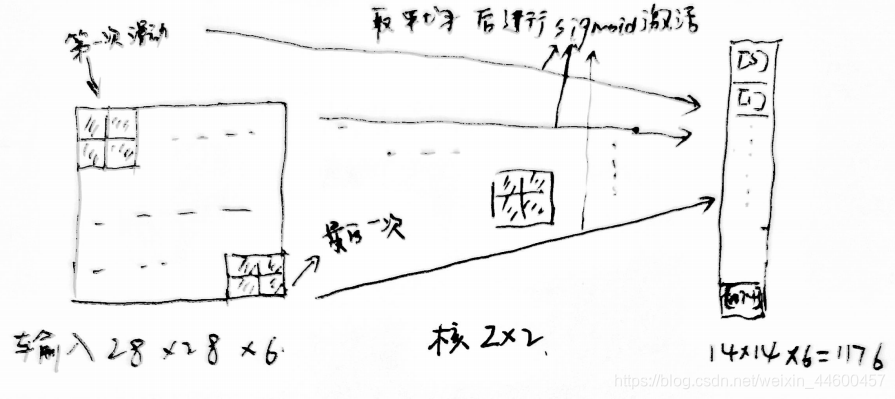 取平均 后进行 sigmoid激活
第一次滑动
[0]
[1]
最后一次
输入 28 × 28 × 6
核 2×2
14×14 × 6 = 1176
https://blog.csdn.net/weixin_44600457